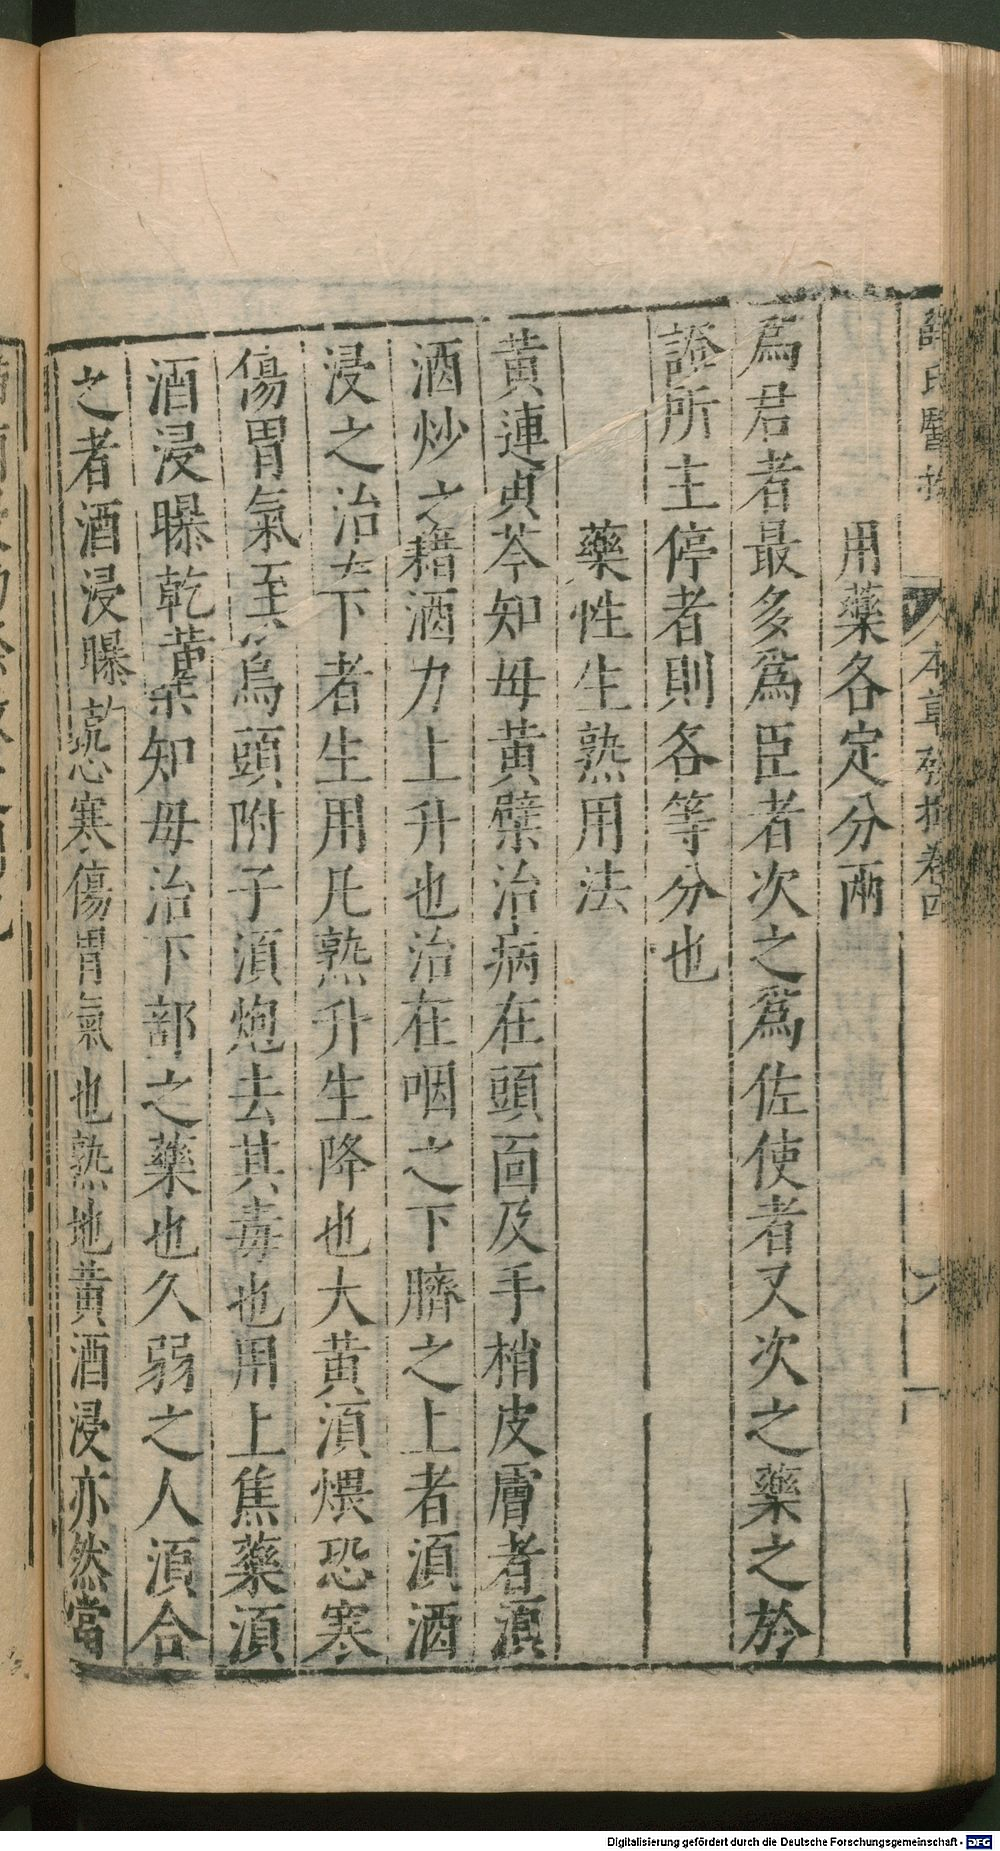 薛氏醫按 本草發揮卷四 六
用藥各定分兩
為君者最多為臣者次之為佐使者又次之藥之於
證所主停者則各等分也
藥性生熟用法
黃連黃芩知母黃檗治病在頭面及手梢皮膚者湏
酒炒之藉酒力上升也治在咽之下臍之上者湏酒
浸之治在下者生用凡熟升生降也大黃湏煨恐寒
傷胃氣至於烏頭附子湏炮去其毒也用上焦藥湏
酒浸曝乾黃檗知母治下部之藥也久弱之人湏合
之者酒浸曝乾恐寒傷胃氣也熟地黃酒浸亦然當
Digitalisierung gefördert durch die Deutsche Forschungsgemeinschaft - DFG